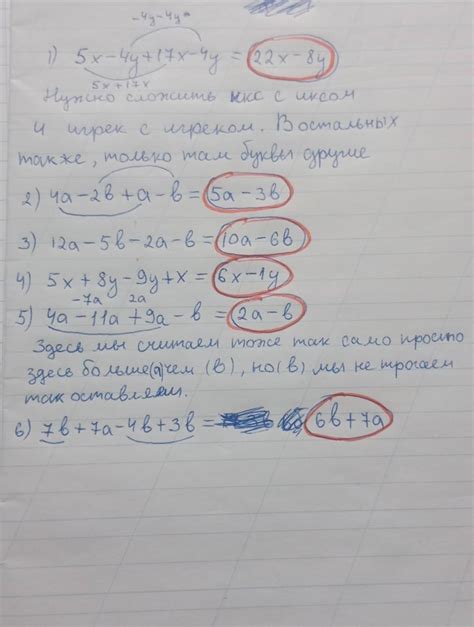 -4y-4y=
1) 5x-4y+17x-4y=22x-8y
5x+17x
Нужно сложить икс с иксом
и игрек с игреком. В остальных
также, только там буквы другие
2) 4a-2b+a-b=5a-3b
3) 12a-5b-2a-b=10a-6b
4) 5x+8y-9y+x=6x-1y
-7a 2a
5) 4a-11a+9a-b=2a-b
Здесь мы считаем тоже так само просто
здесь больше(a)чем (b), но(b) мы не трогаем
так оставляем.
6) 7b+7a-4b+3b= 6b+7a